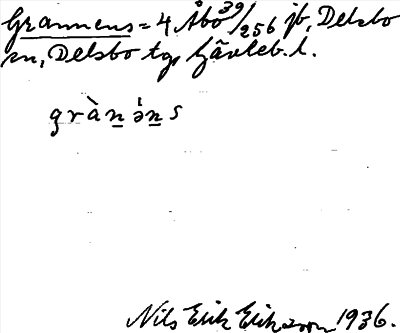 Grannens = 4 Åbo 39/256 jb, Delsbo
sn, Delsbo tg, Gävleb. l.
gràn̲ə́n̲s
Nils Erik Eriksson 1936.